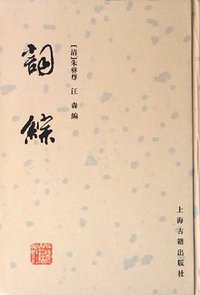 詞綜
[清]朱彝尊 汪森編
上海古籍出版社